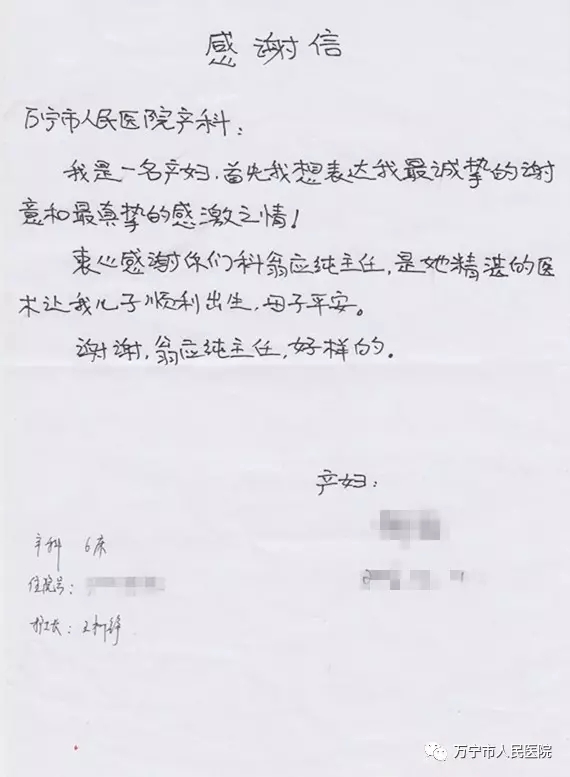 感谢信
万宁市人民医院产科:
我是一名产妇,首先我想表达我最诚挚的谢
意和最真挚的感激之情!
衷心感谢你们科翁应纯主任,是她精湛的医
术让我儿子顺利出生,母子平安。
谢谢,翁应纯主任,好样的.
产妇:
产科 6床
住院号:
万宁市人民医院